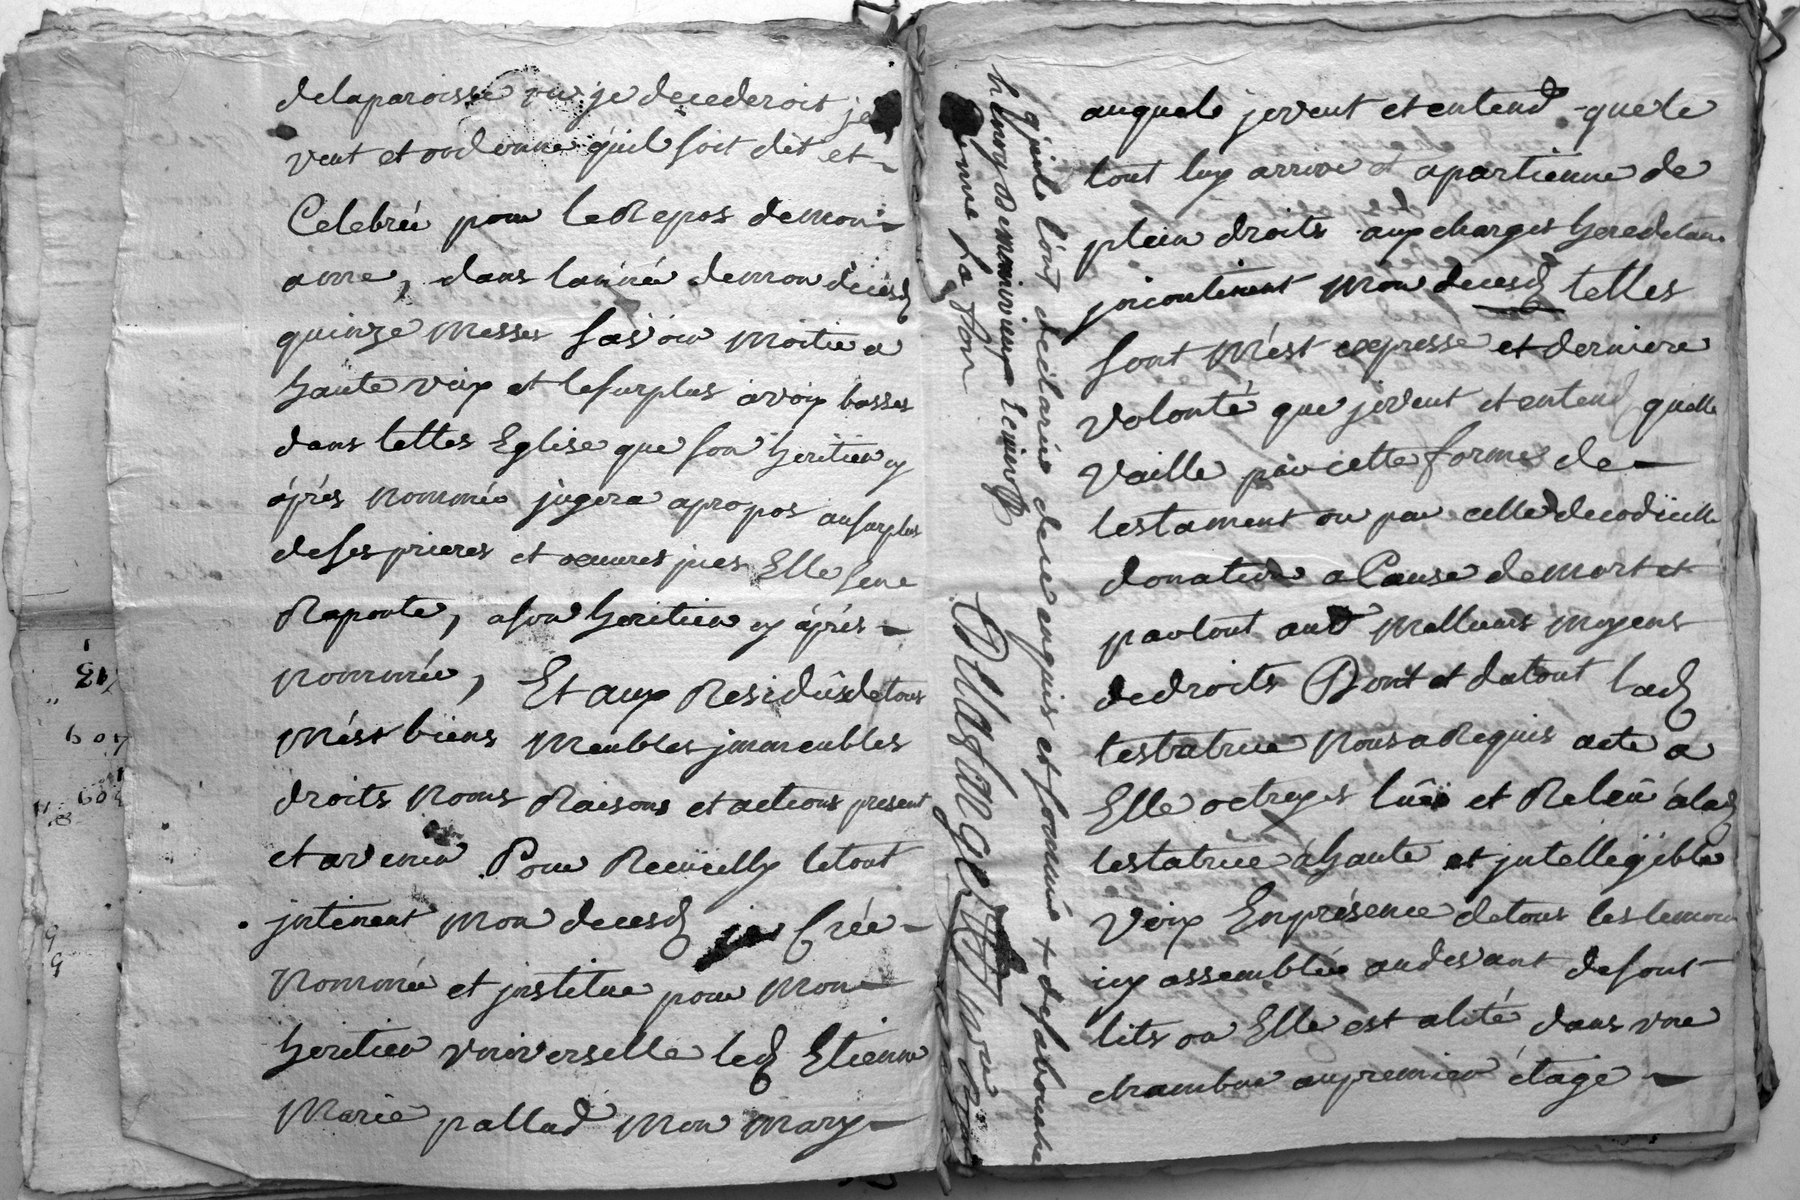 delaparoisse ou je decederoit je
veut et ordonne qu'il soit dit et
Celebréé pour le Repos de mon
ame, dans l'année demon décésd
quinze Messes savoir Moitie a
haute voix et le surplus avoix basses
dans telles Eglise que son heritier cy
áprés Nommée jugera apropos au surplus
de ses prieres et oeuvres pies Elle sene
Raporte, a son heritier cy áprés
Nommée, Et aux Residûs detous
Més biens Meubles jmmeubles
droits Noms Raisons et actions present
et avenir Pour Recuëilly le tout
jntenent Mon decesd je Créé
Nommée et jnstitue pour Mon
heritier vniverselle led Etienne
Marie pallad Mon Mary
auquele jeveut et entend quele
tout luy arrive et apartienne de
plein droits aux charges heredetaires
jncontinent Mon decesd telles
sont Mést expresse et derniere
volonté que jeveut et entend quelle
Vaille par cette forme de
testament ou par celle decodicille
donation a Cause demort et
partout aut Mellieurs Moyens
de droits Dont et du tout lad
testratrice Nous a Requis acte a
Elle octroyés lûë et Releû á lad
testatrice á haute et jntellegible
Voix En présence detous les temoins
icy assemblée au devant de sont
lits ou Elle est alité dans vne
chambre au premier étage
qu'ils l'ont déclarée de ce enquis et sommée & de sa bouche
henry